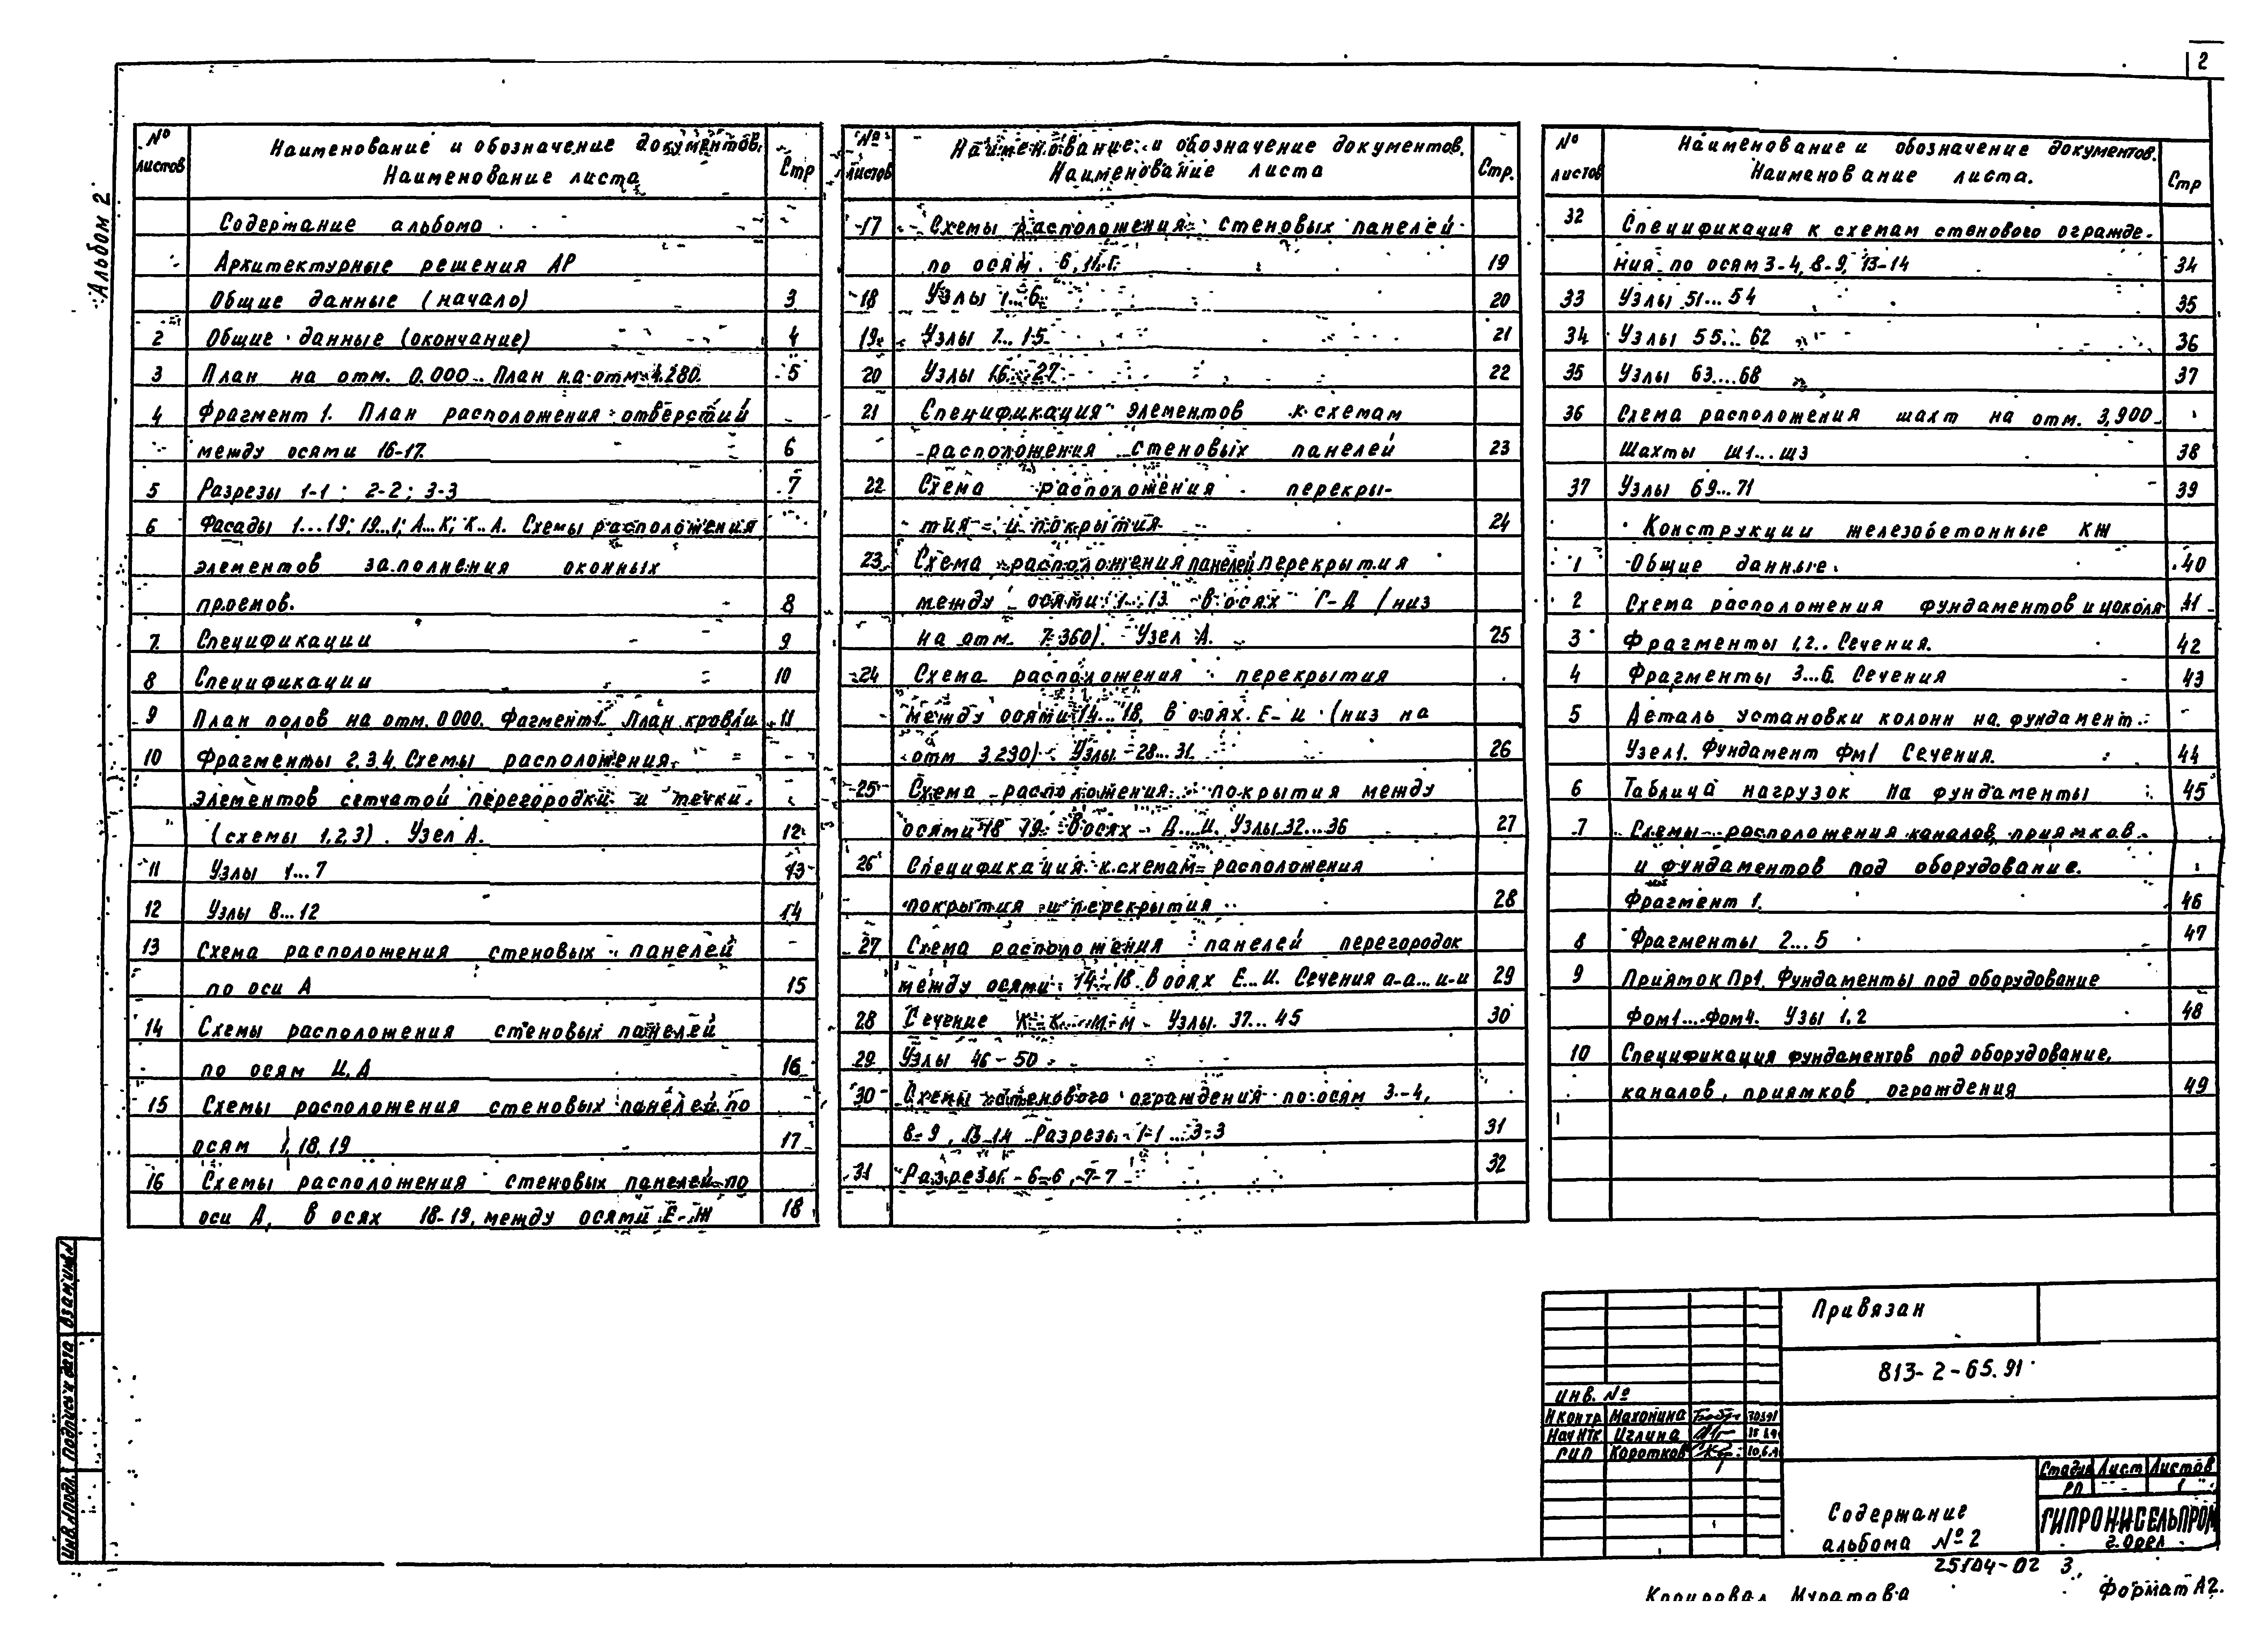 2
Альбом 2
№ листов Наименование и обозначение документов. Наименование листа Стр
Содержание альбома
Архитектурные решения АР
Общие данные (начало) 3
2 Общие данные (окончание) 4
3 План на отм. 0.000. План на отм 4.280. 5
4 Фрагмент 1. План расположения отверстий
между осями 16-17. 6
5 Разрезы 1-1; 2-2; 3-3 7
6 Фасады 1...19; 19...1; А...К; К...А. Схемы расположения
элементов заполнения оконных
проемов. 8
7. Спецификации 9
8 Спецификации 10
9 План полов на отм. 0.000. Фагмент1. План кровли 11
10 Фрагменты 2.3.4. Схемы расположения
элементов сетчатой перегородки и течки.
(схемы 1,2,3). Узел А. 12
11 Узлы 1...7 13
12 Узлы 8...12 14
13 Схема расположения стеновых панелей
по оси А 15
14 Схемы расположения стеновых панелей
по осям И, Д 16
15 Схемы расположения стеновых панелей по
осям 1, 18, 19 17
16 Схемы расположения стеновых панелей по
оси Д, в осях 18-19, между осями Е-Ж 18
№ листов Наименование и обозначение документов. Наименование листа Стр.
17 Схемы расположения стеновых панелей
по осям 6, 11, Г. 19
18 Узлы 1...6 20
19 Узлы 7...15 21
20 Узлы 16...27 22
21 Спецификация элементов к схемам
расположения стеновых панелей 23
22 Схема расположения перекры-
тия и покрытия 24
23 Схема расположения панелей перекрытия
между осями 1...13 в осях Г-Д (низ
на отм. 7.360). Узел А. 25
24 Схема расположения перекрытия
между осями 14...18, в осях Е-И (низ на
отм 3.230). Узлы 28...31. 26
25 Схема расположения покрытия между
осями 18 19 в осях Д...И. Узлы 32...36 27
26 Спецификация к схемам расположения
покрытия и перекрытия 28
27 Схема расположения панелей перегородок
между осями 14-18 в осях Е...И. Сечения а-а...и-и 29
28 Сечение к-к...м-м. Узлы 37...45 30
29 Узлы 46-50
30 Схемы стенового ограждения по осям 3-4,
8-9, 13-14 Разрезы 1-1...3-3 31
31 Разрезы 6-6, 7-7 32
№ листов Наименование и обозначение документов. Наименование листа. Стр
32 Спецификация к схемам стенового огражде-
ния по осям 3-4, 8-9, 13-14 34
33 Узлы 51...54 35
34 Узлы 55...62 36
35 Узлы 63...68 37
36 Схема расположения шахт на отм. 3,900
Шахты Ш1...Ш3 38
37 Узлы 69...71 39
Конструкции железобетонные КЖ
1 Общие данные. 40
2 Схема расположения фундаментов и цоколя 41
3 Фрагменты 1,2. Сечения. 42
4 Фрагменты 3...6. Сечения 43
5 Деталь установки колонн на фундамент.
Узел1. Фундамент Фм1 Сечения. 44
6 Таблица нагрузок на фундаменты 45
7 Схемы расположения каналов, приямков
и фундаментов под оборудование.
Фрагмент 1. 46
8 Фрагменты 2...5 47
9 Приямок Пр1. Фундаменты под оборудование
Фом1...Фом4. Узы 1,2 48
10 Спецификация фундаментов под оборудование,
каналов, приямков ограждения 49
Взам.инв.N
Подпись и дата
Инв.N подл.
Привязан
813-2-65.91
инв. №
Н контр Махонина
Нач НТК Иглина
ГИП Коротков
Стадия Лист Листов
РП 1
Содержание
альбома №2
ГИПРОНИСЕЛЬПРОМ
г. Орел
25104-02 3
Копировал Муратова
Формат А2.